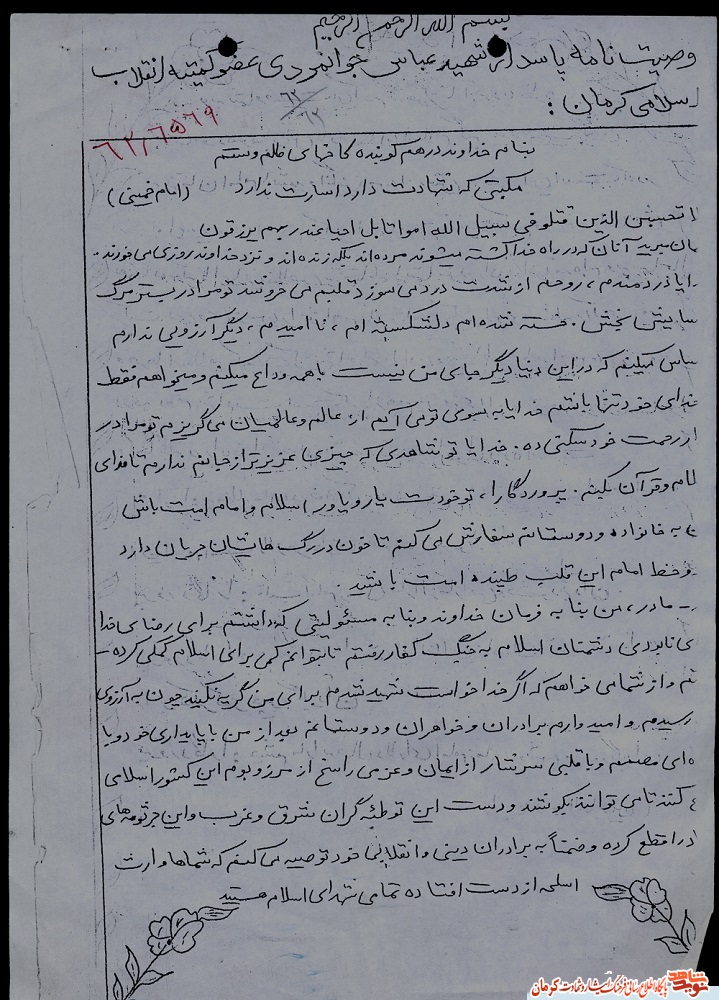 بسم الله الرحمن الرحیم
وصیتنامه پاسدار شهید عباس جوانمردی عضو کمیته انقلاب
سلامی کرمان :
۶۲/۶۵۶۹
بنام خداوند درهم کوبنده کاخهای ظلم و ستم
مکتبی که شهادت دارد اسارت ندارد (امام خمینی)
لا تحسبن الذین قتلو فی سبیل الله امواتا بل احیا عند ربهم یرزقون
مان مبرید آنان که در راه خدا کشته میشوند مرده‌اند بلکه زنده‌اند و نزد خداوند روزی می‌خورند .
دردمندم ، روحم از شدت درد می‌سوزد قلبم می‌خروشد تو مرا در بستر مرگ
سایش بخش . خسته شده‌ام دلشکسته‌ام ، نا امیدم ، دیگر آرزویی ندارم
ساس میکنم که در این دنیا دیگر جای من نیست با همه وداع میکنم و میخواهم فقط
خدای خود تنها باشم خدایا به سوی تو می‌آیم از عالم و عالمیان می‌گریزم تو مرا در
از رحمت خود سکنی ده . خدایا تو شاهدی که چیزی عزیزتر از جانم ندارم تا فدای
لام و قرآن کنم . پروردگارا ، تو خودت یار و یاور اسلام و امام امت باش
به خانواده و دوستانم سفارش می‌کنم تا خون در رگ هایشان جریان دارد
و خط امام این قلب طپنده امت باشند .
مادر ، من بنا به فرمان خداوند و بنا به مسئولیتی که داشتم برای رضای خدا
ی نابودی دشمنان اسلام به جنگ کفار رفتم تا بتوانم کمی برای اسلام کمکی کرده
م و از شما می خواهم که اگر خدا خواست شهید شدم برای من گریه نکنید چون به آرزوی
رسیدم و امیدوارم برادران و خواهران و دوستانم بعد از من با پایداری خود و با
ه‌ای مصمم و با قلبی سرشار از ایمان و عزمی راسخ از مرز و بوم این کشور اسلامی
ع کنند تا می توانند بکوشند و دست این توطئه گران شرق و غرب و این جرثومه های
را قطع کرده و ضمناً به برادران دینی و انقلابی خود توصیه می‌کنم که شماها وارث
اسلحه از دست افتاده تمامی شهدای اسلام هستید
نوید شاهد
پایگاه اطلاع رسانی فرهنگ ایثار و شهادت کرمان